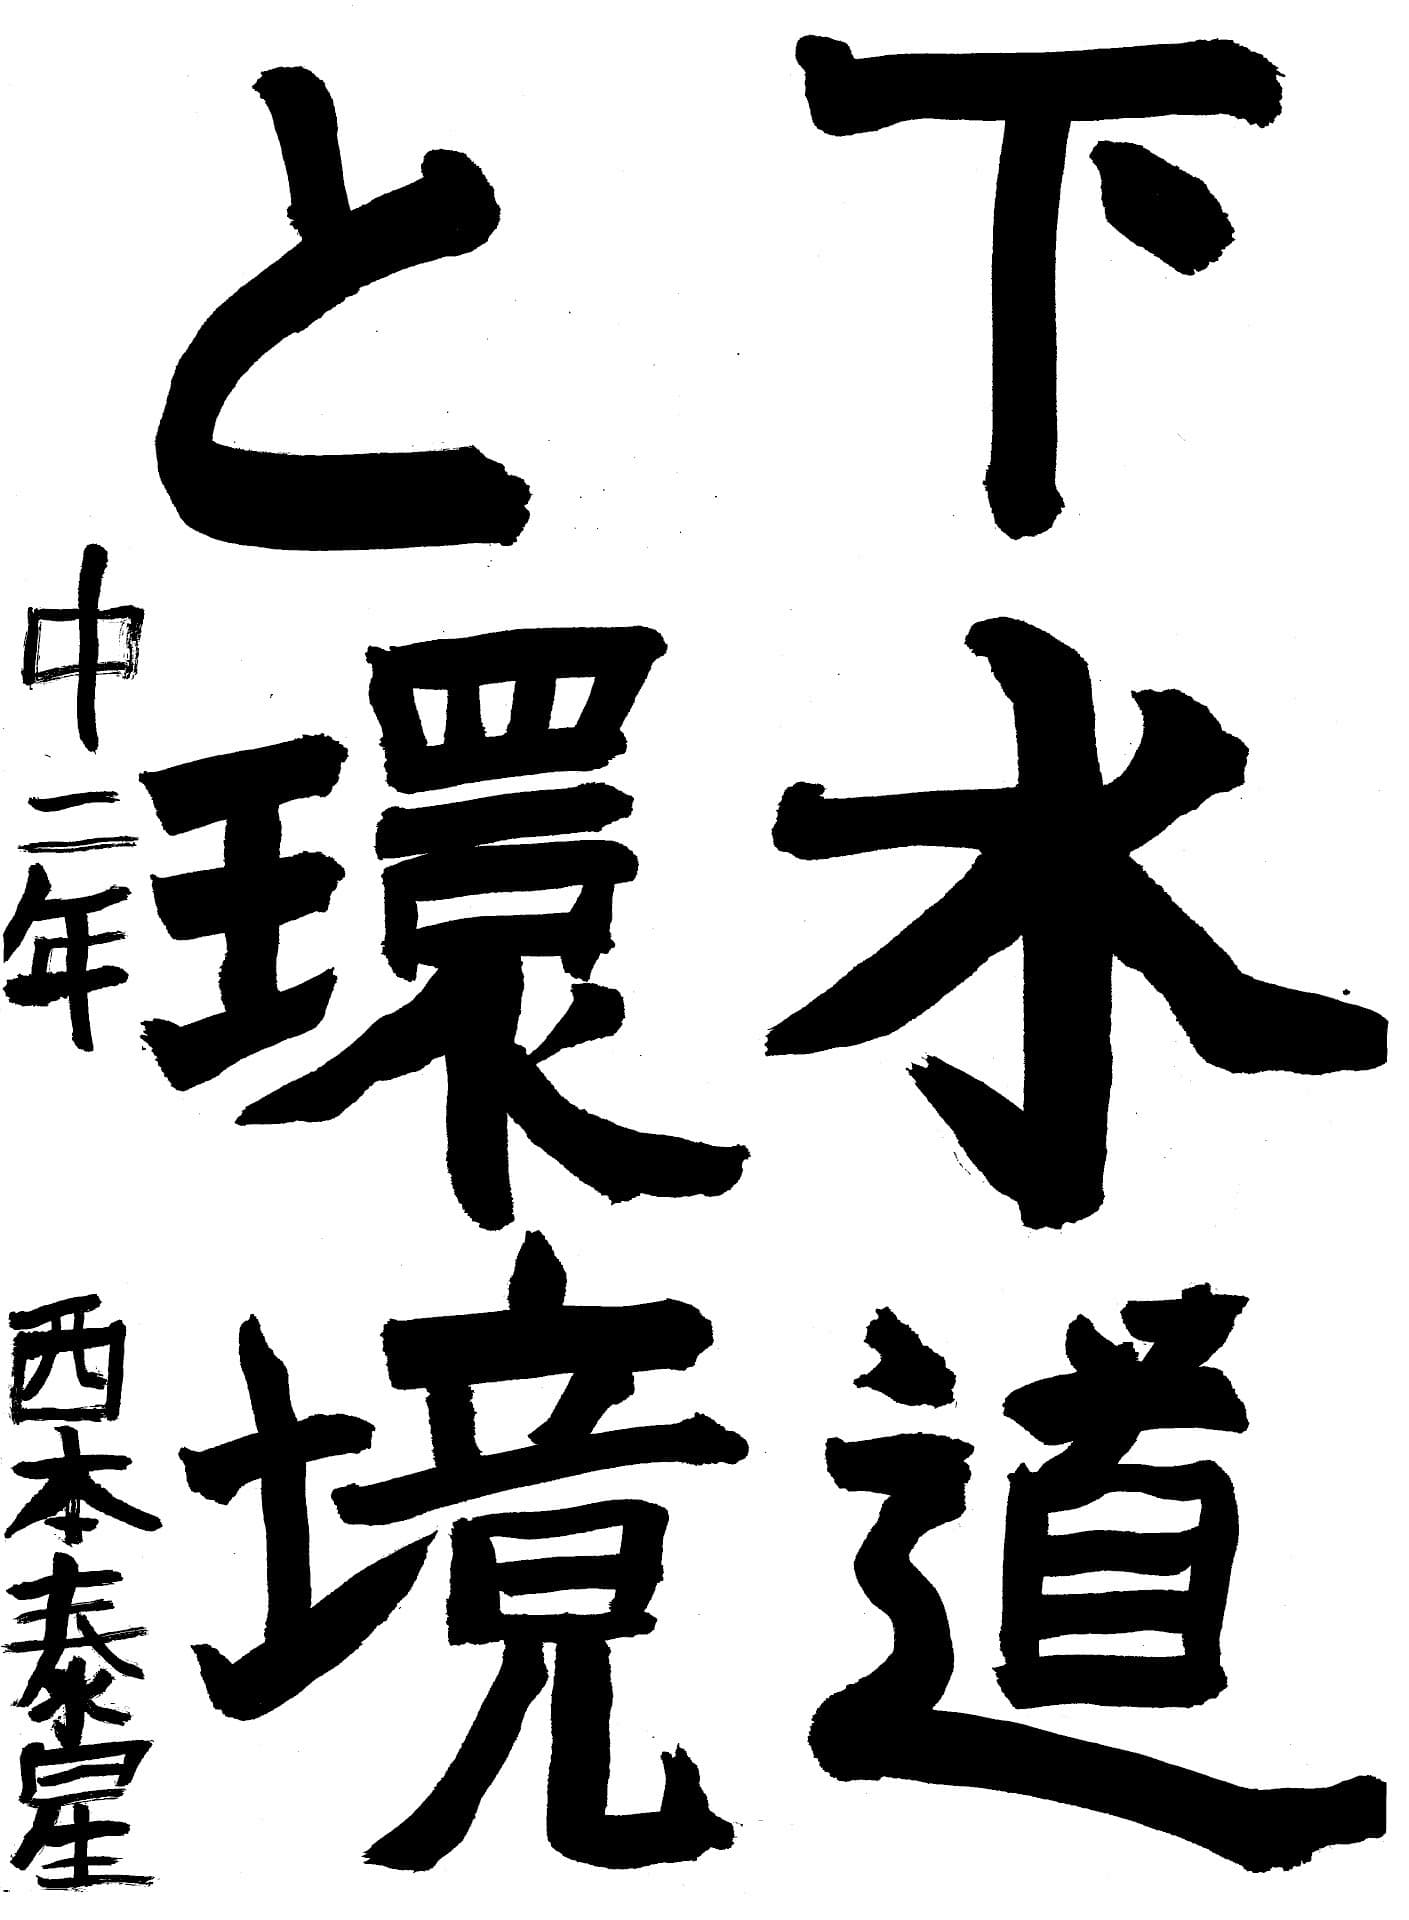 下水道
と環境
中二年 西本泰星